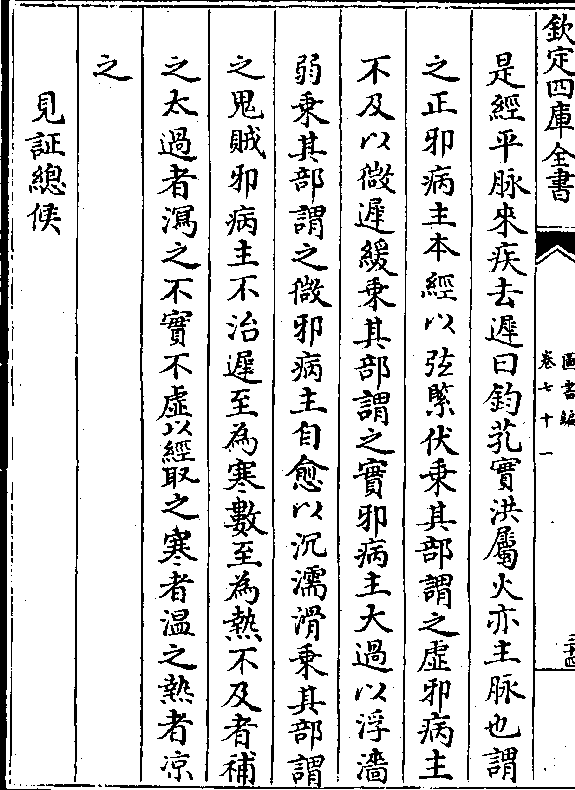 欽定四庫全書
圖書編
卷七十一
三十四
是經平脉來疾去遲曰鈎芤實洪屬火亦主脉也謂
之正邪病主本經以弦緊伏乗其部謂之虛邪病主
不及以微遲緩乗其部謂之實邪病主大過以浮濇
弱乗其部謂之微邪病主自愈以沉濡滑乗其部謂
之鬼賊邪病主不治遲至為寒數至為熱不及者補
之太過者瀉之不實不虛以經取之寒者温之熱者凉
之
見証總候